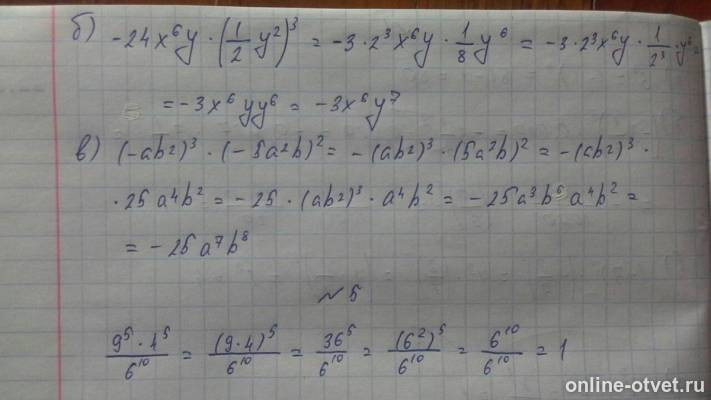 б) -24x⁶y · (1/2 y²)³ = -3·2³x⁶y · 1/8 y⁶ = -3·2³x⁶y · 1/2³ · y⁶ =
= -3x⁶yy⁶ = -3x⁶y⁷
в) (-ab²)³ · (-5a²b)² = -(ab²)³ · (5a²b)² = -(ab²)³ ·
· 25a⁴b² = -25 · (ab²)³ · a⁴b² = -25a³b⁶a⁴b² =
= -25a⁷b⁸
№5
9⁵·4⁵/6¹⁰ = (9·4)⁵/6¹⁰ = 36⁵/6¹⁰ = (6²)⁵/6¹⁰ = 6¹⁰/6¹⁰ = 1
online-otvet.ru